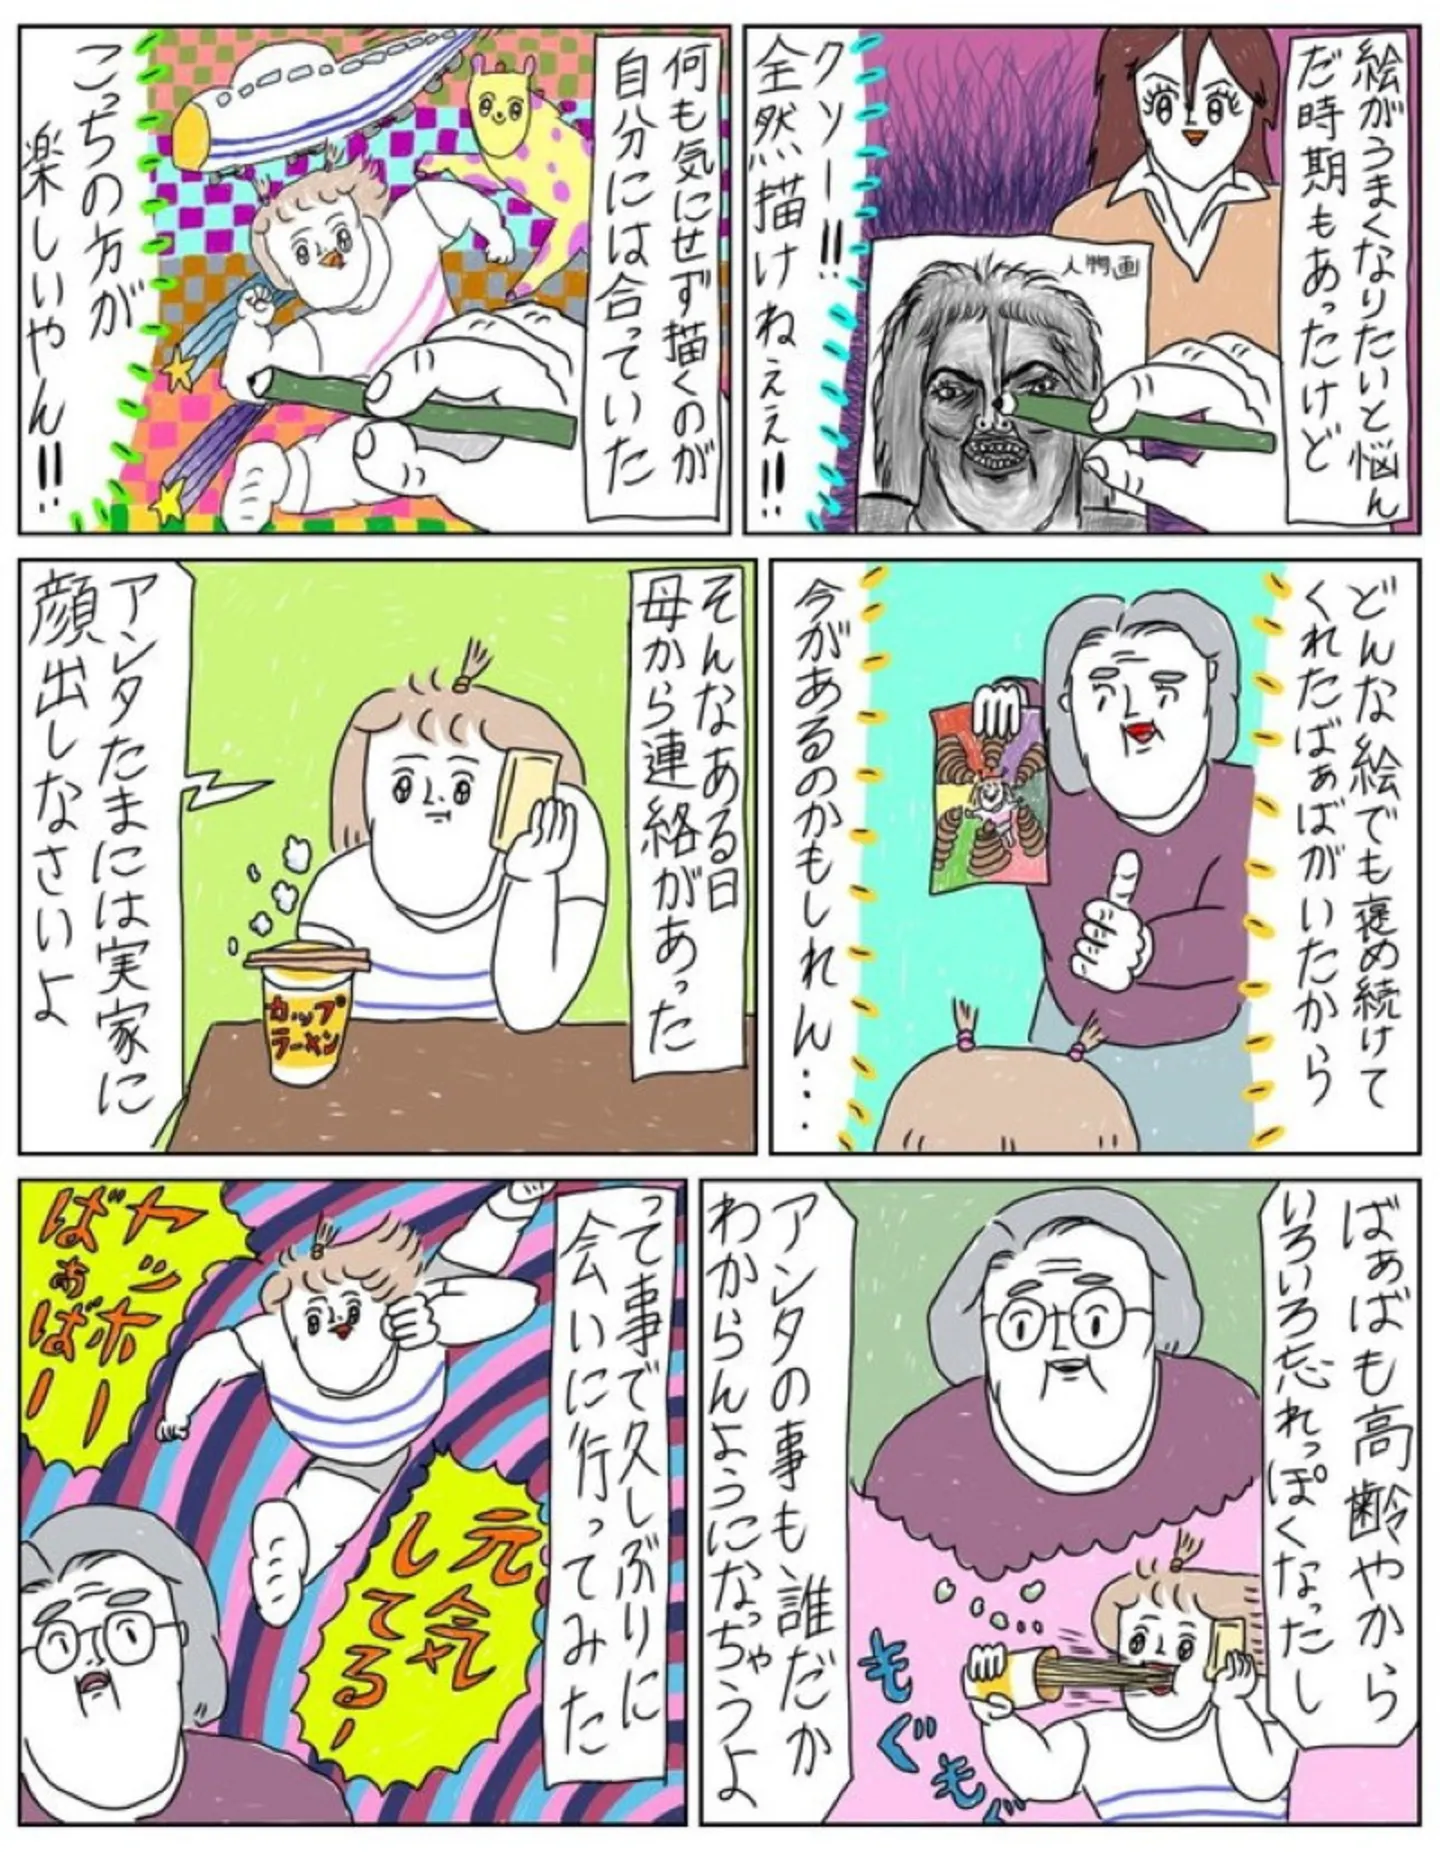 絵がうまくなりたいと悩ん
だ時期もあったけど
人物画
クソー!!
全然描けねぇぇ!!
何も気にせず描くのが
自分には合っていた
こっちの方が
楽しいやん!!
どんな絵でも褒め続けて
くれたばぁばがいたから
今があるのかもしれん…
そんなある日
母から連絡があった
カップ
ラーメン
アンタたまには実家に
顔出しなさいよ
ばぁばも高齢やから
いろいろ忘れっぽくなったし
アンタの事も、誰だか
わからんようになっちゃうよ
もぐもぐ
って事で久しぶりに
会いに行ってみた
ヤッホー
ばぁばー
元気
してるー